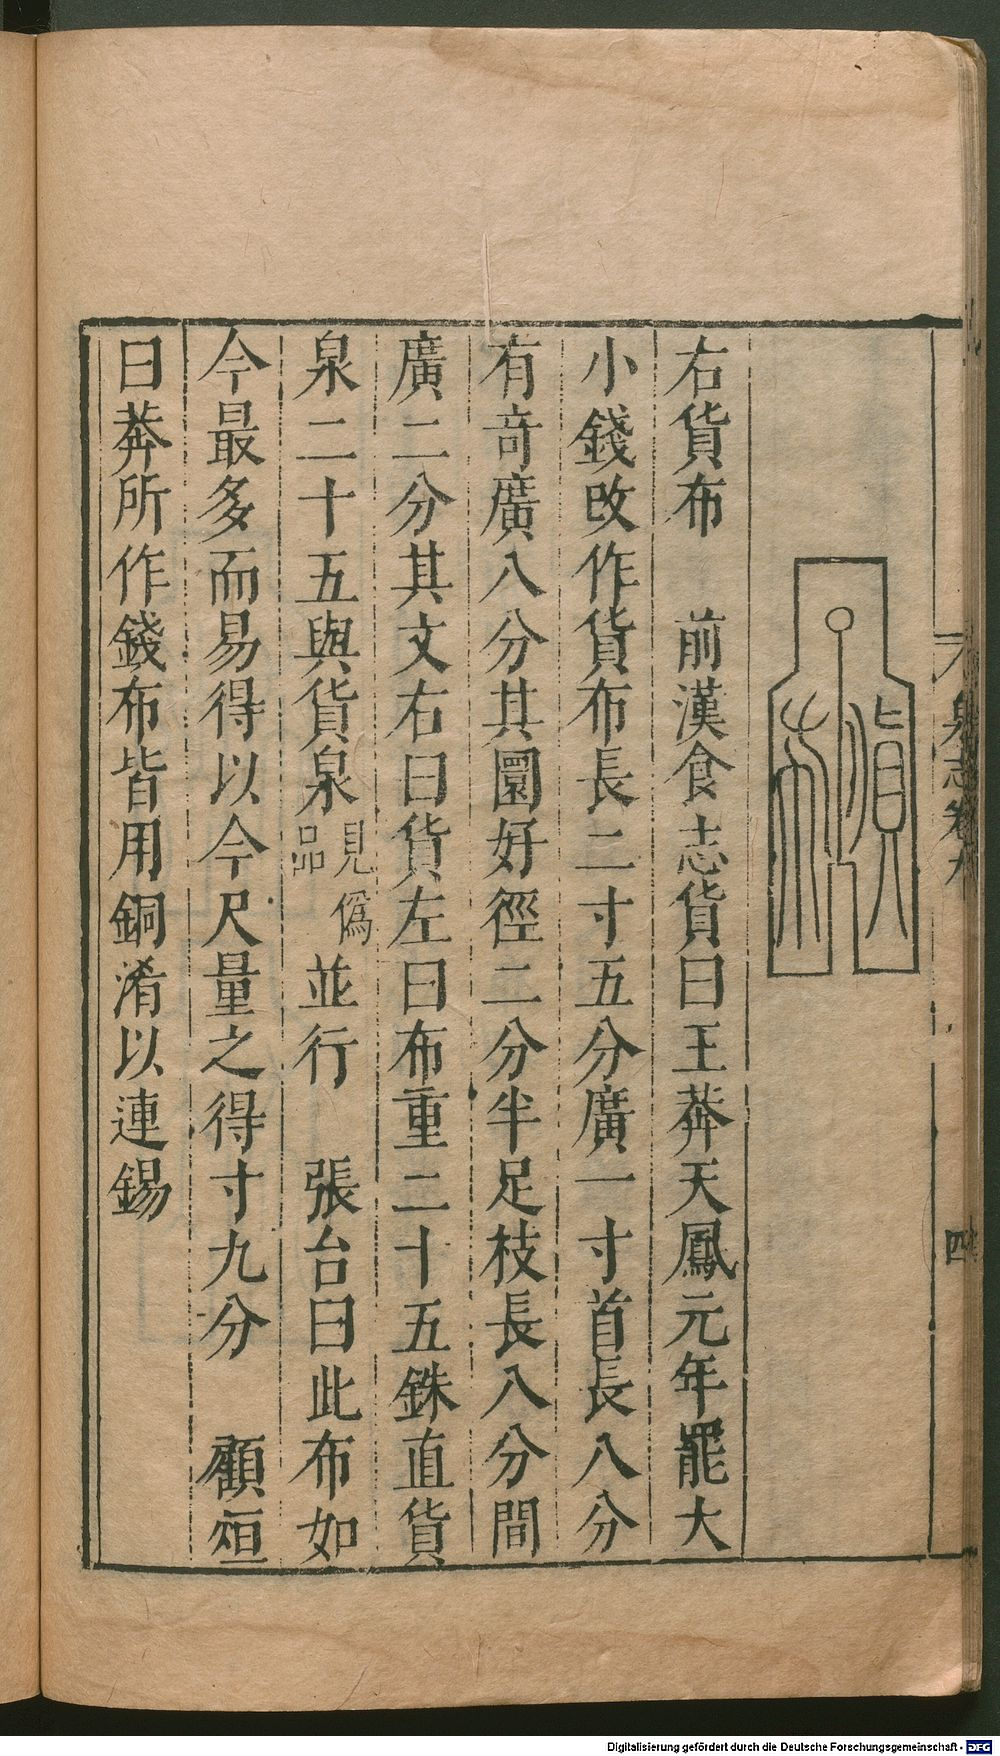 泉志卷九
四
貨布
右貨布　前漢食志貨曰王莽天鳳元年罷大
小錢改作貨布長二寸五分廣一寸首長八分
有奇廣八分其圜好徑二分半足枝長八分間
廣二分其文右曰貨左曰布重二十五銖直貨
泉二十五與貨泉見僞品並行　張台曰此布如
今最多而易得以今尺量之得寸九分　顧烜
曰莽所作錢布皆用銅淆以連錫
Digitalisierung gefördert durch die Deutsche Forschungsgemeinschaft - DFG